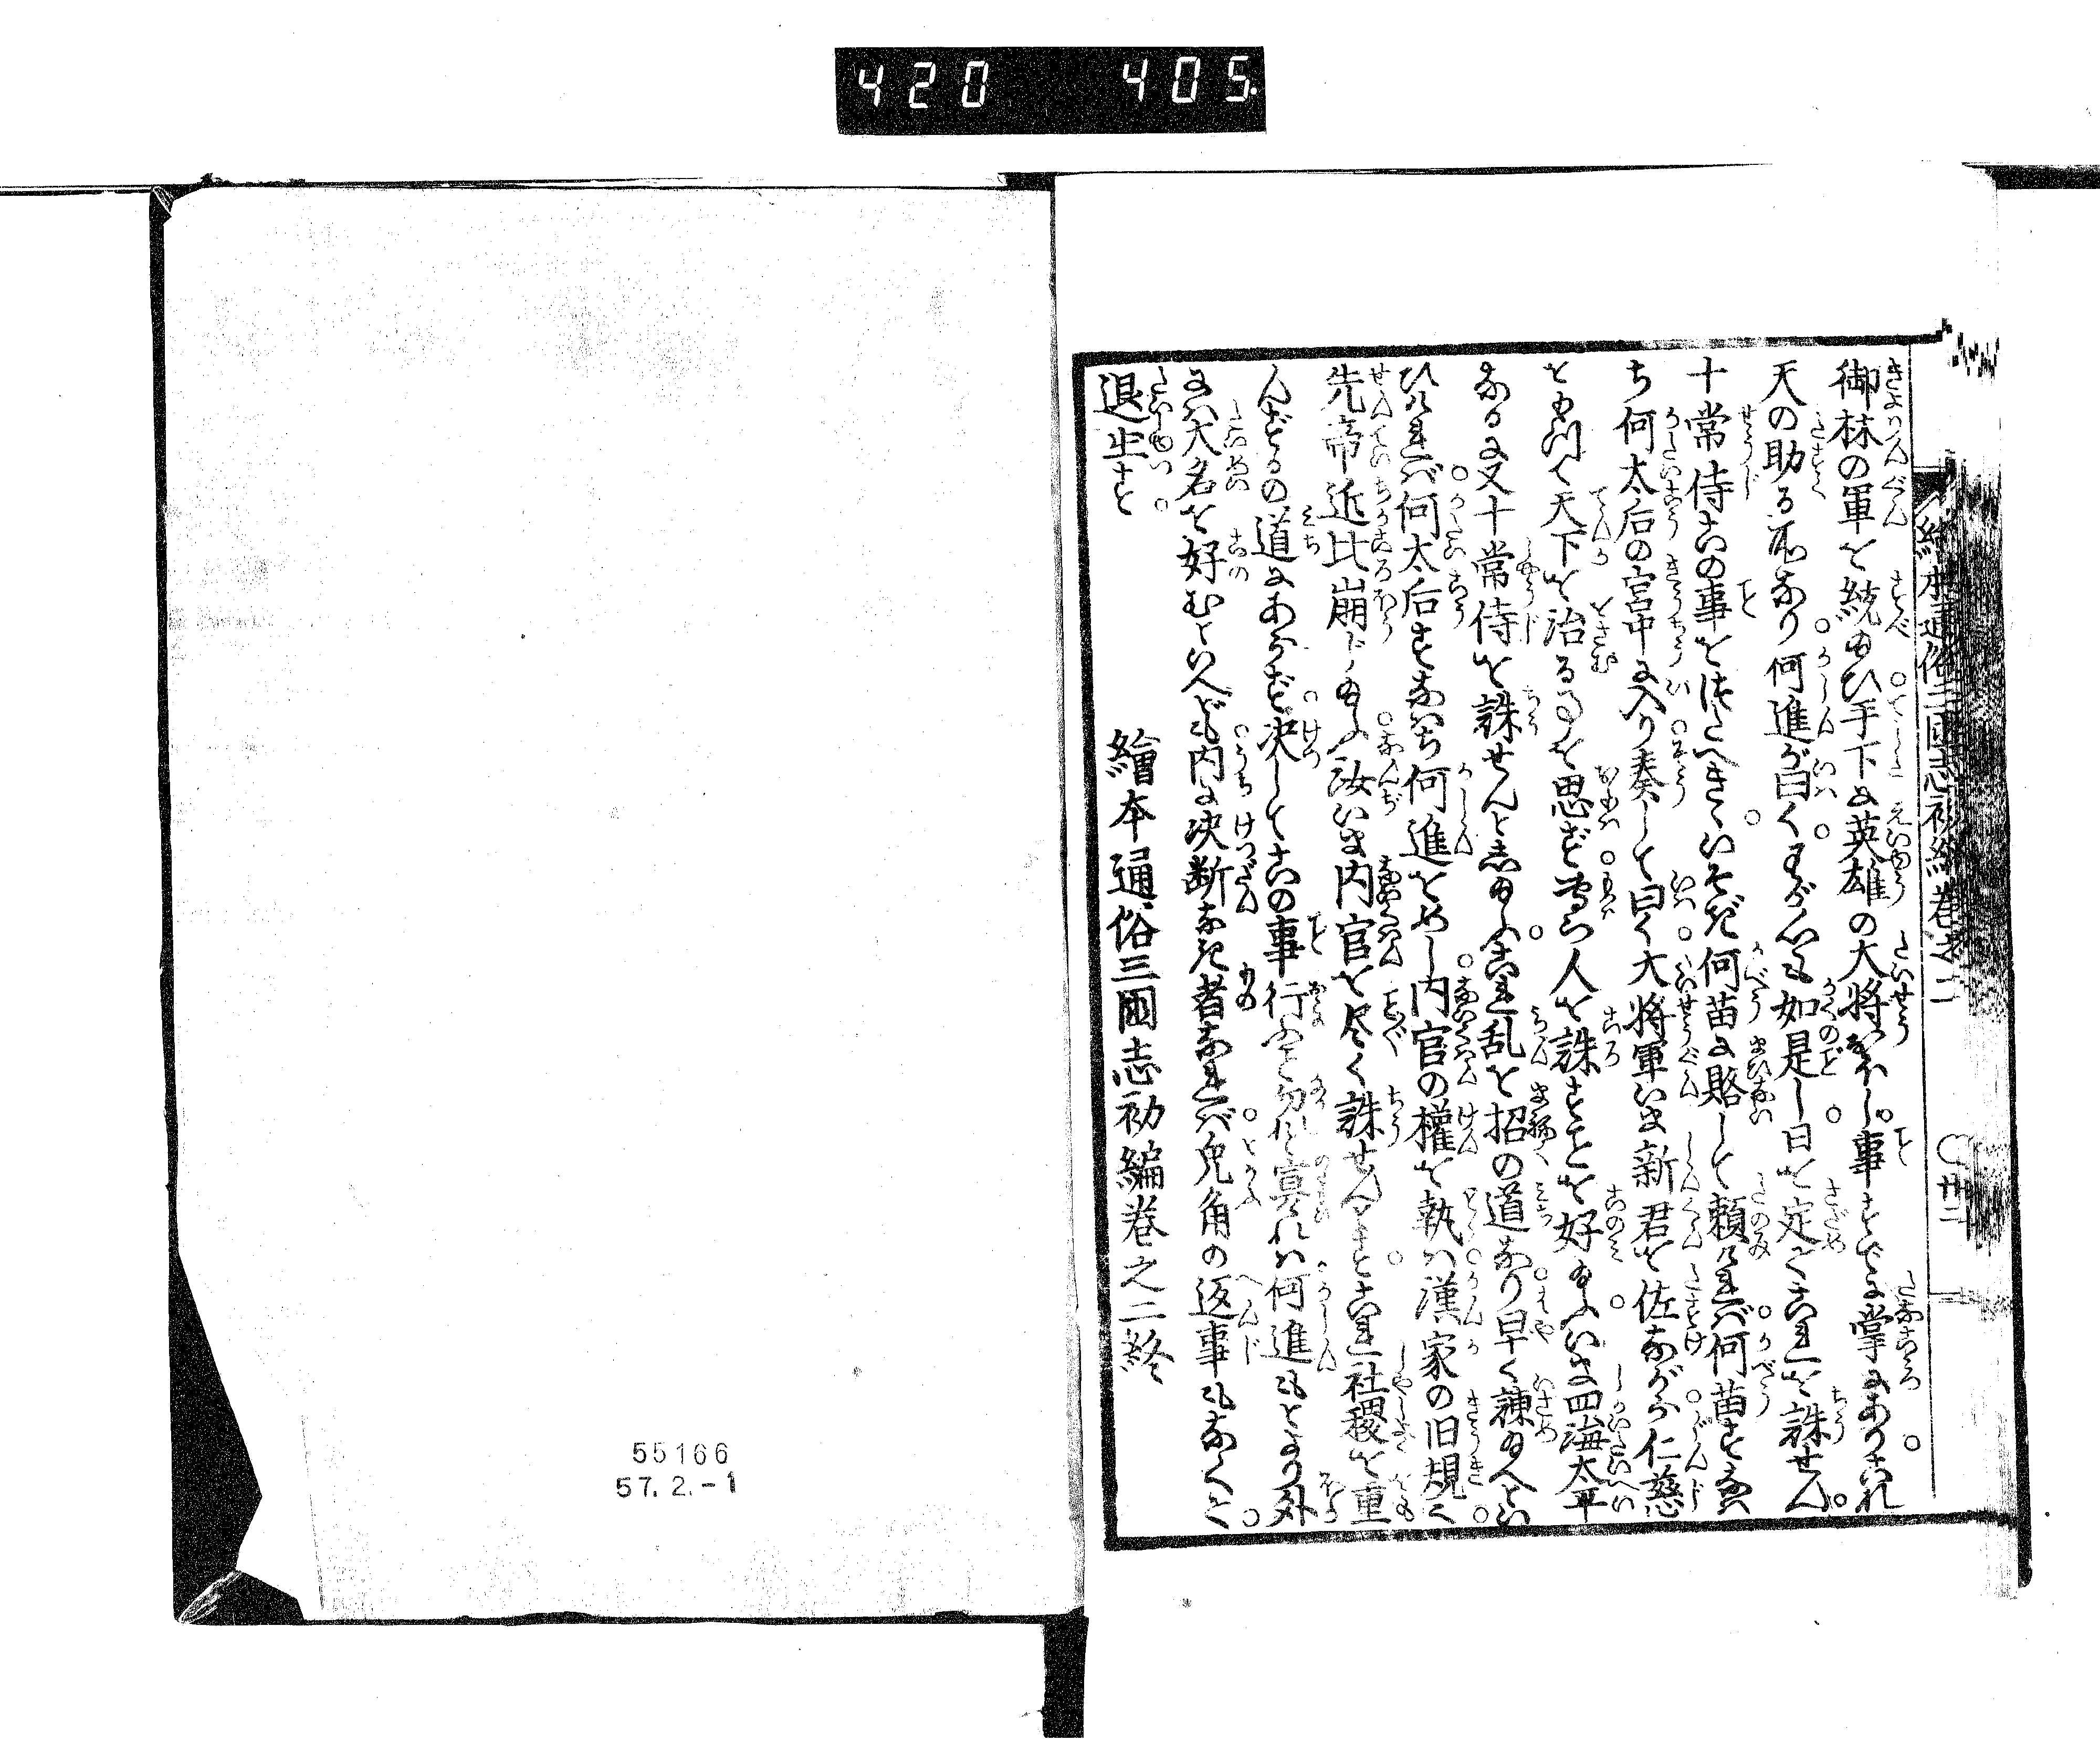 420 405
繪本通俗三國志初編卷之二 〇廿二
御林の軍を統給ひ手下に英雄の大将おほし。事すでに掌にありこれ
天の助る所なり。何進が曰く。わが心も如是し日を定てこれを誅せん。
十常侍此事をつたへきゝいそぎ何苗に賂して頼ければ。何苗すなは
ち何太后の宮中に入り。奏して曰く。大将軍いま新君を佐ながら。仁慈
をもつて天下を治る事を思ず。専ら人を誅すことを好給ふ。いま四海太平
なるに又十常侍を誅せんとし給ふ。これ乱を招の道なり。早く諫給へとい
ひければ。何太后すなはち何進をめし。内官の權を執は。漢家の旧規く。
先帝近比崩じ給ふ。汝いま内官を尽く誅せんとす。これ社稷を重
んずるの道にあらず。决して此の事行ふこと勿れ寞れは。何進もとより外
には大名を好むといへども。内に决断なき者なれば。兎角の返事もなくして。
退出す。
繪本通俗三國志初編卷之二終
55166
57.2.-1